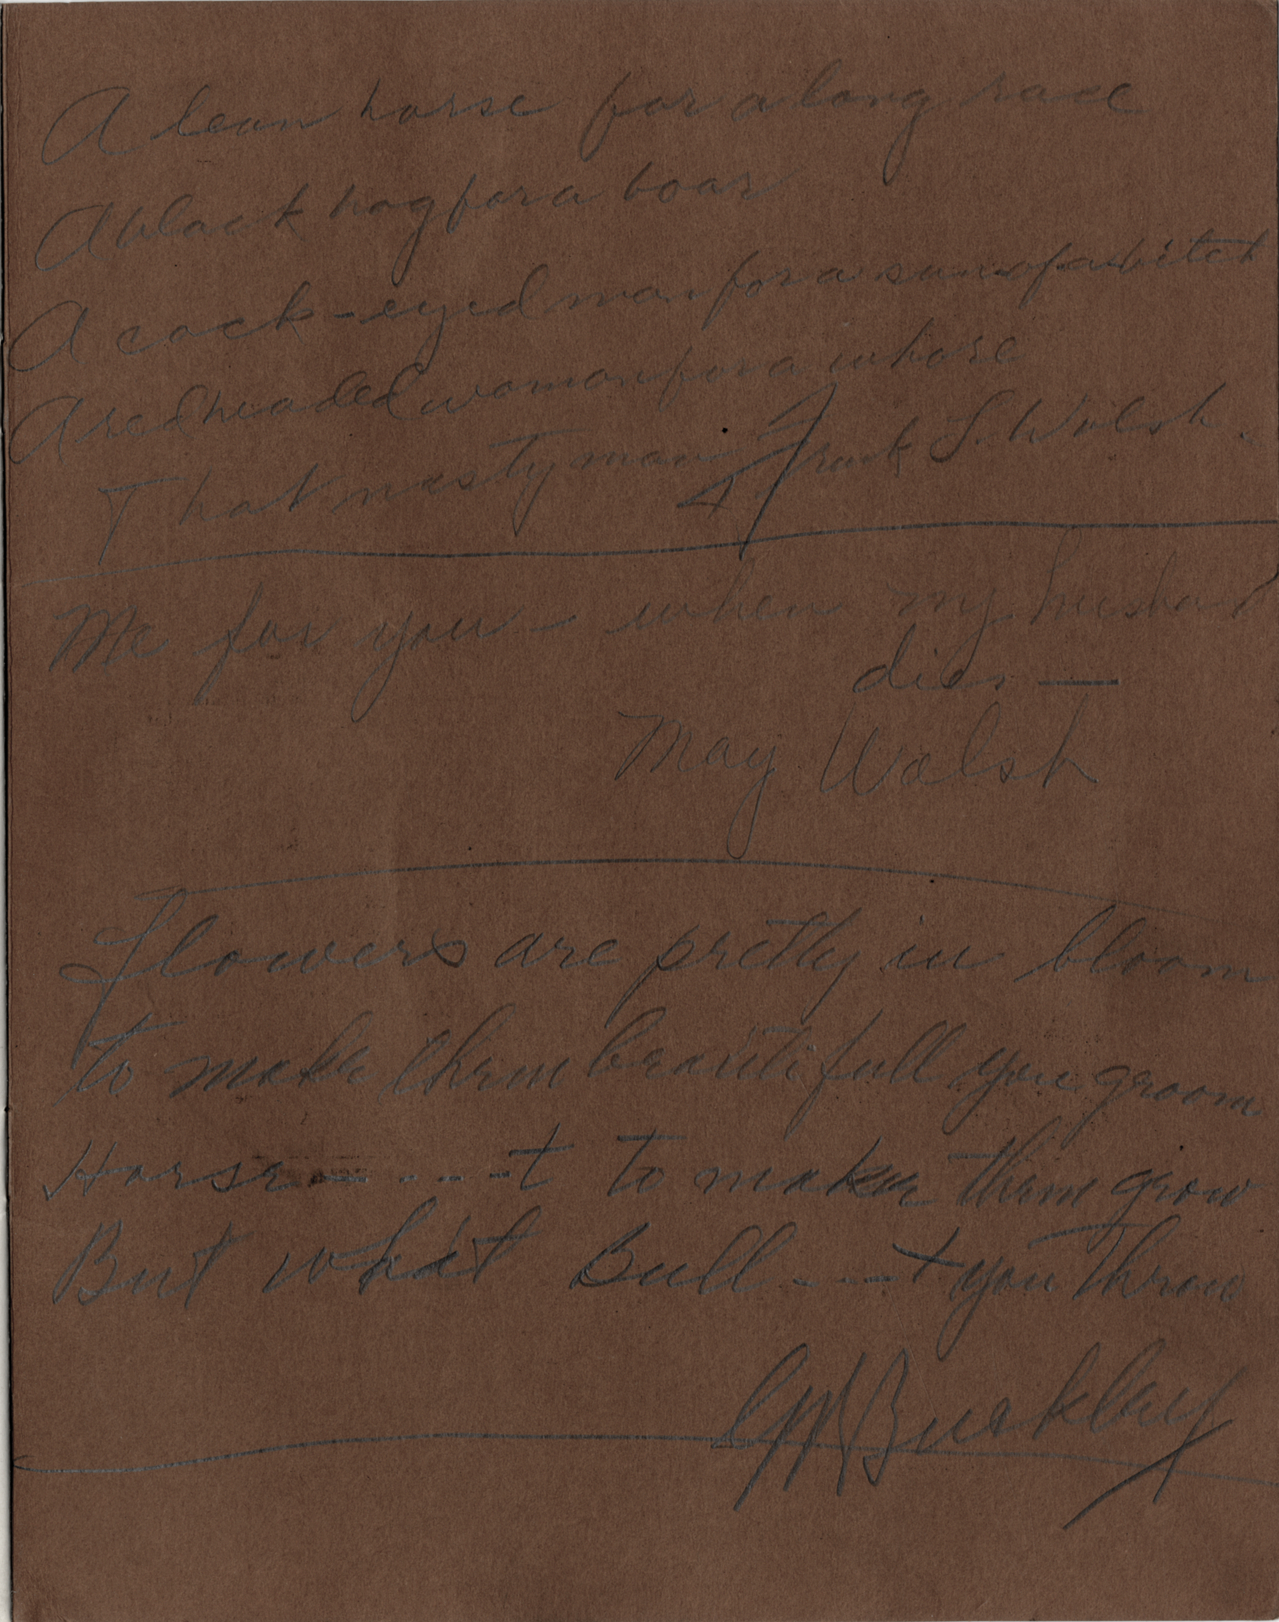 A lean horse for a long race
A black hog for a boar
A cock-eyed man for a sunofabitch
A redheaded woman for a whore
That nasty man Frank S. Walsh.
Me for you – when my husband
dies —
May Walsh
Flowers are pretty in bloom
To make them beautifull you groom
Horse - - - - t to make them grow
But what Bull - - - t you throw
Buckley